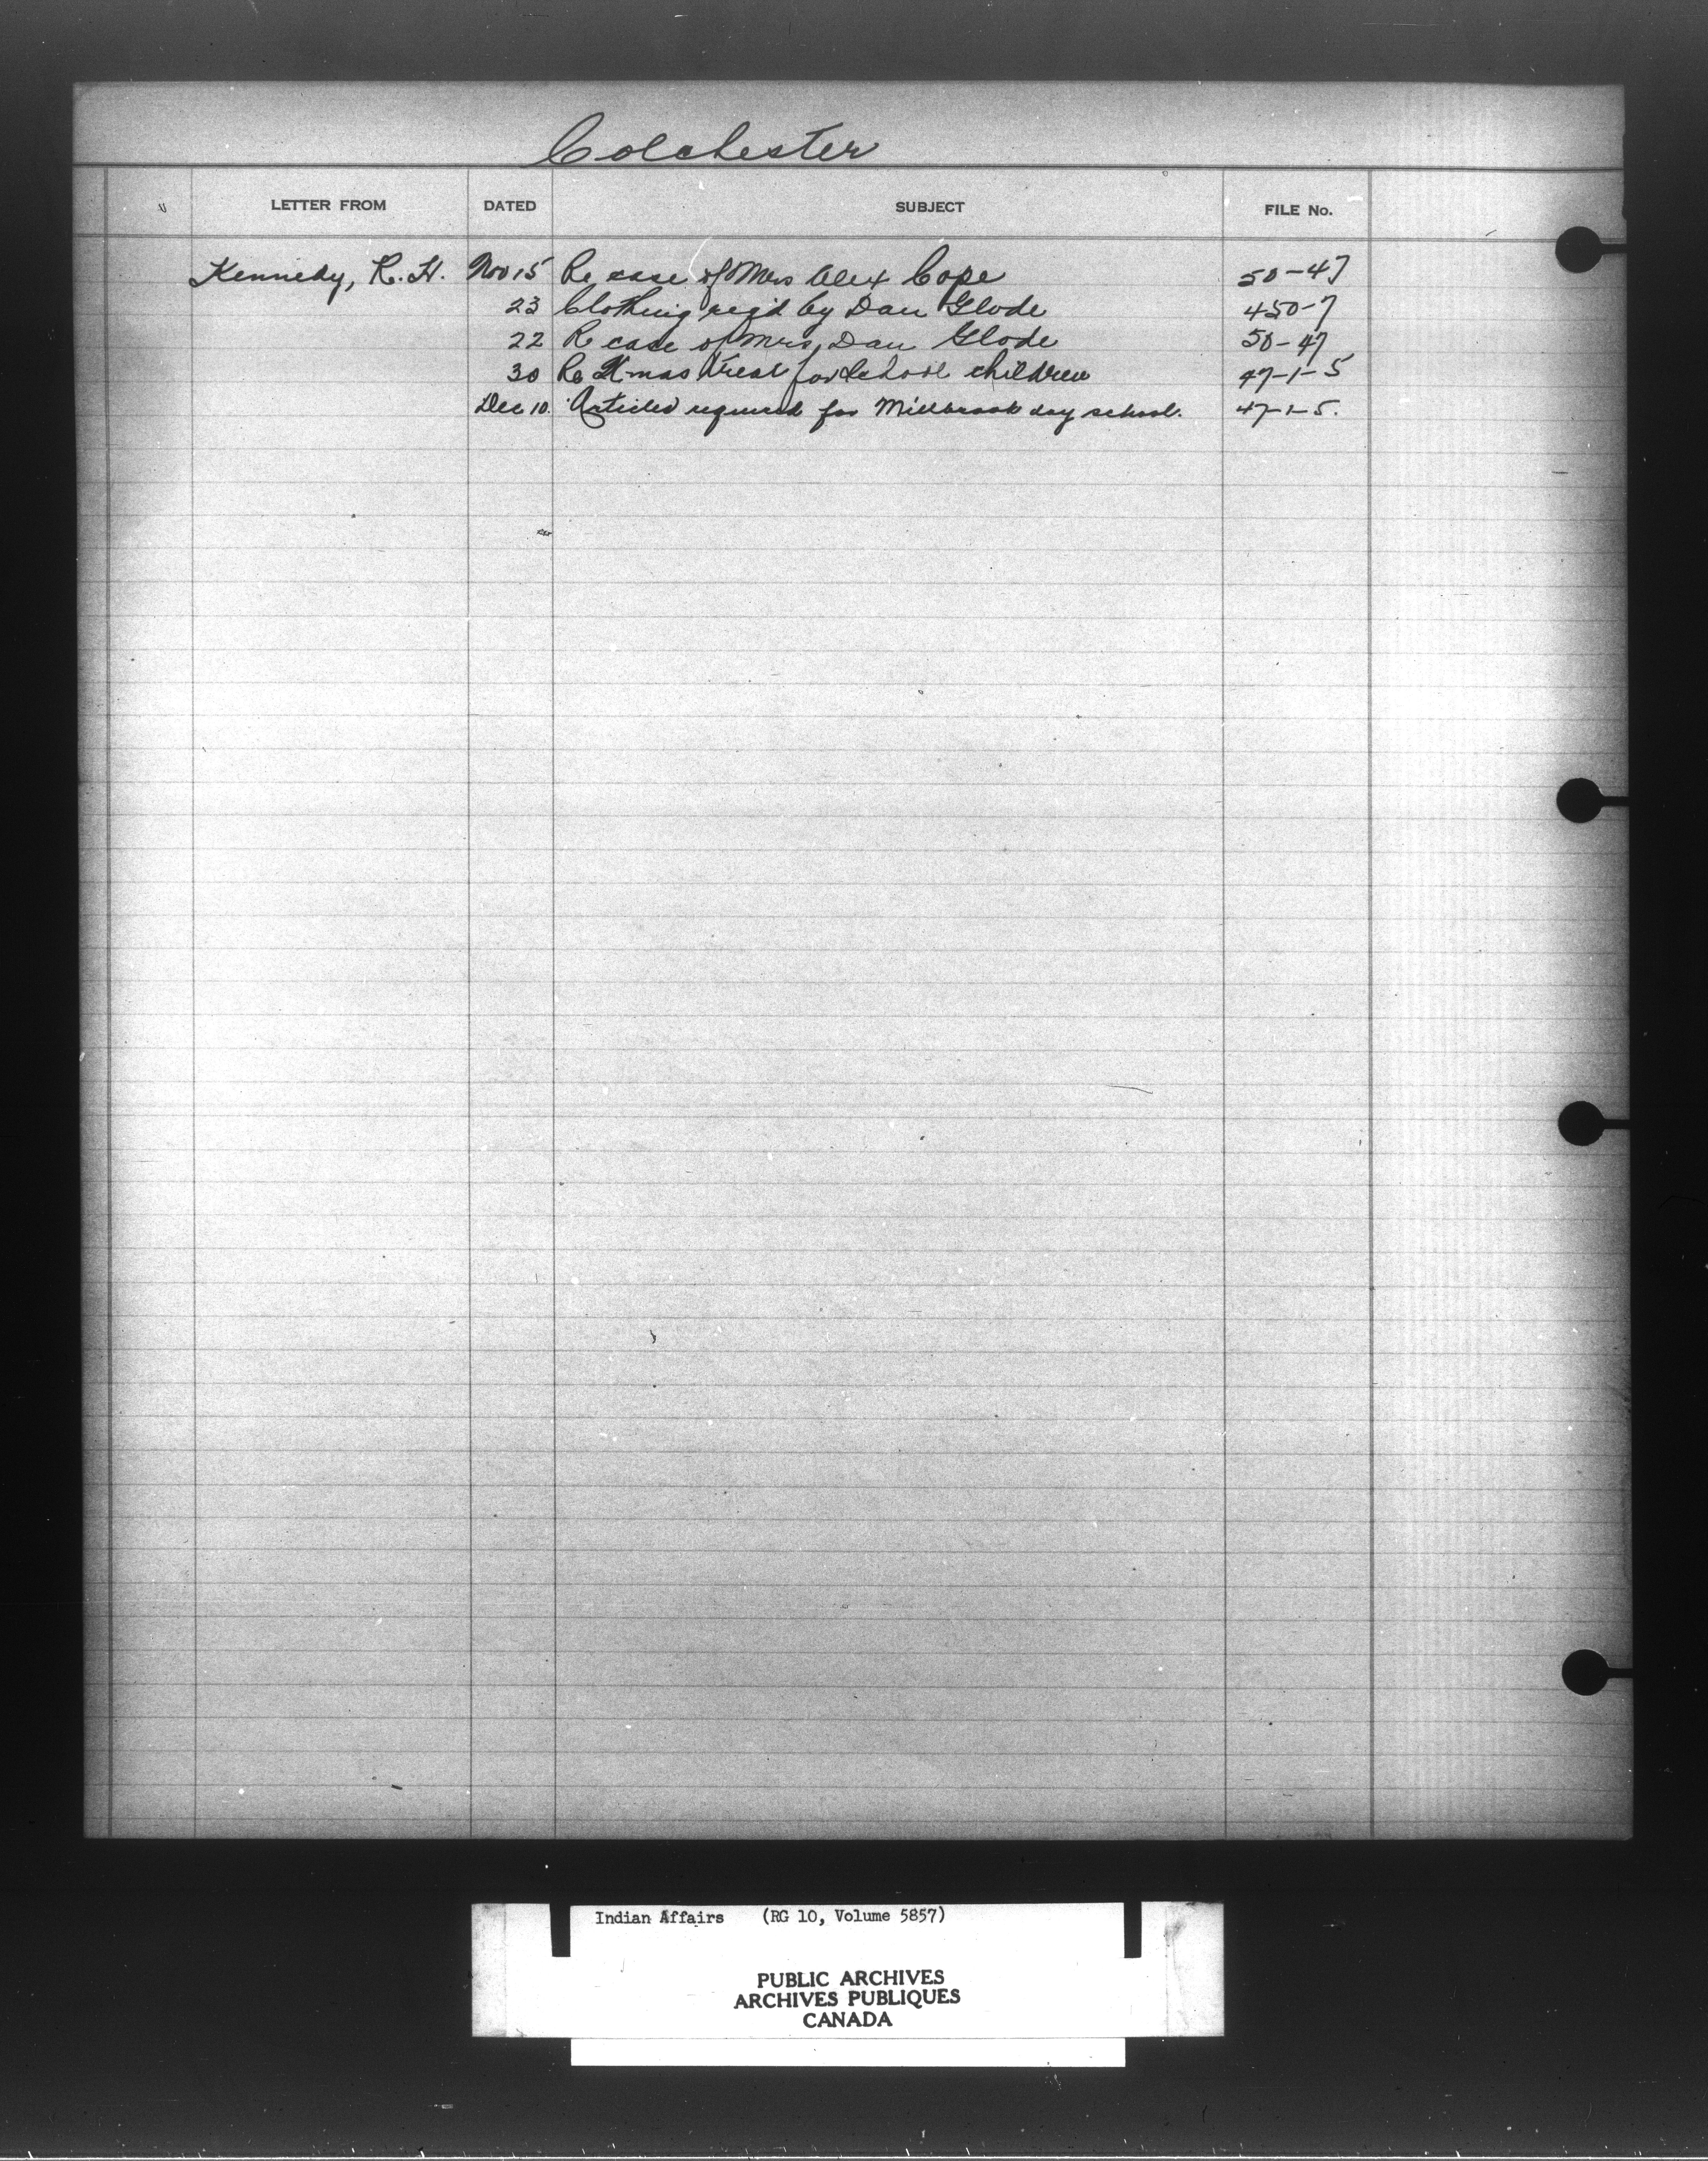 Colchester
LETTER FROM DATED SUBJECT FILE No.
Kennedy, R. H. Nov 15 Re case of Mrs Alex Cope 50-47
23 Clothing req'd by Dan Glode 450-7
22 Re case of Mrs, Dan Glode 50-47
30 Re Xmas treat for School children 47-1-5
Dec 10. Articles required for Millbrook day school. 47-1-5.
Indian Affairs (RG 10, Volume 5857)
PUBLIC ARCHIVES
ARCHIVES PUBLIQUES
CANADA